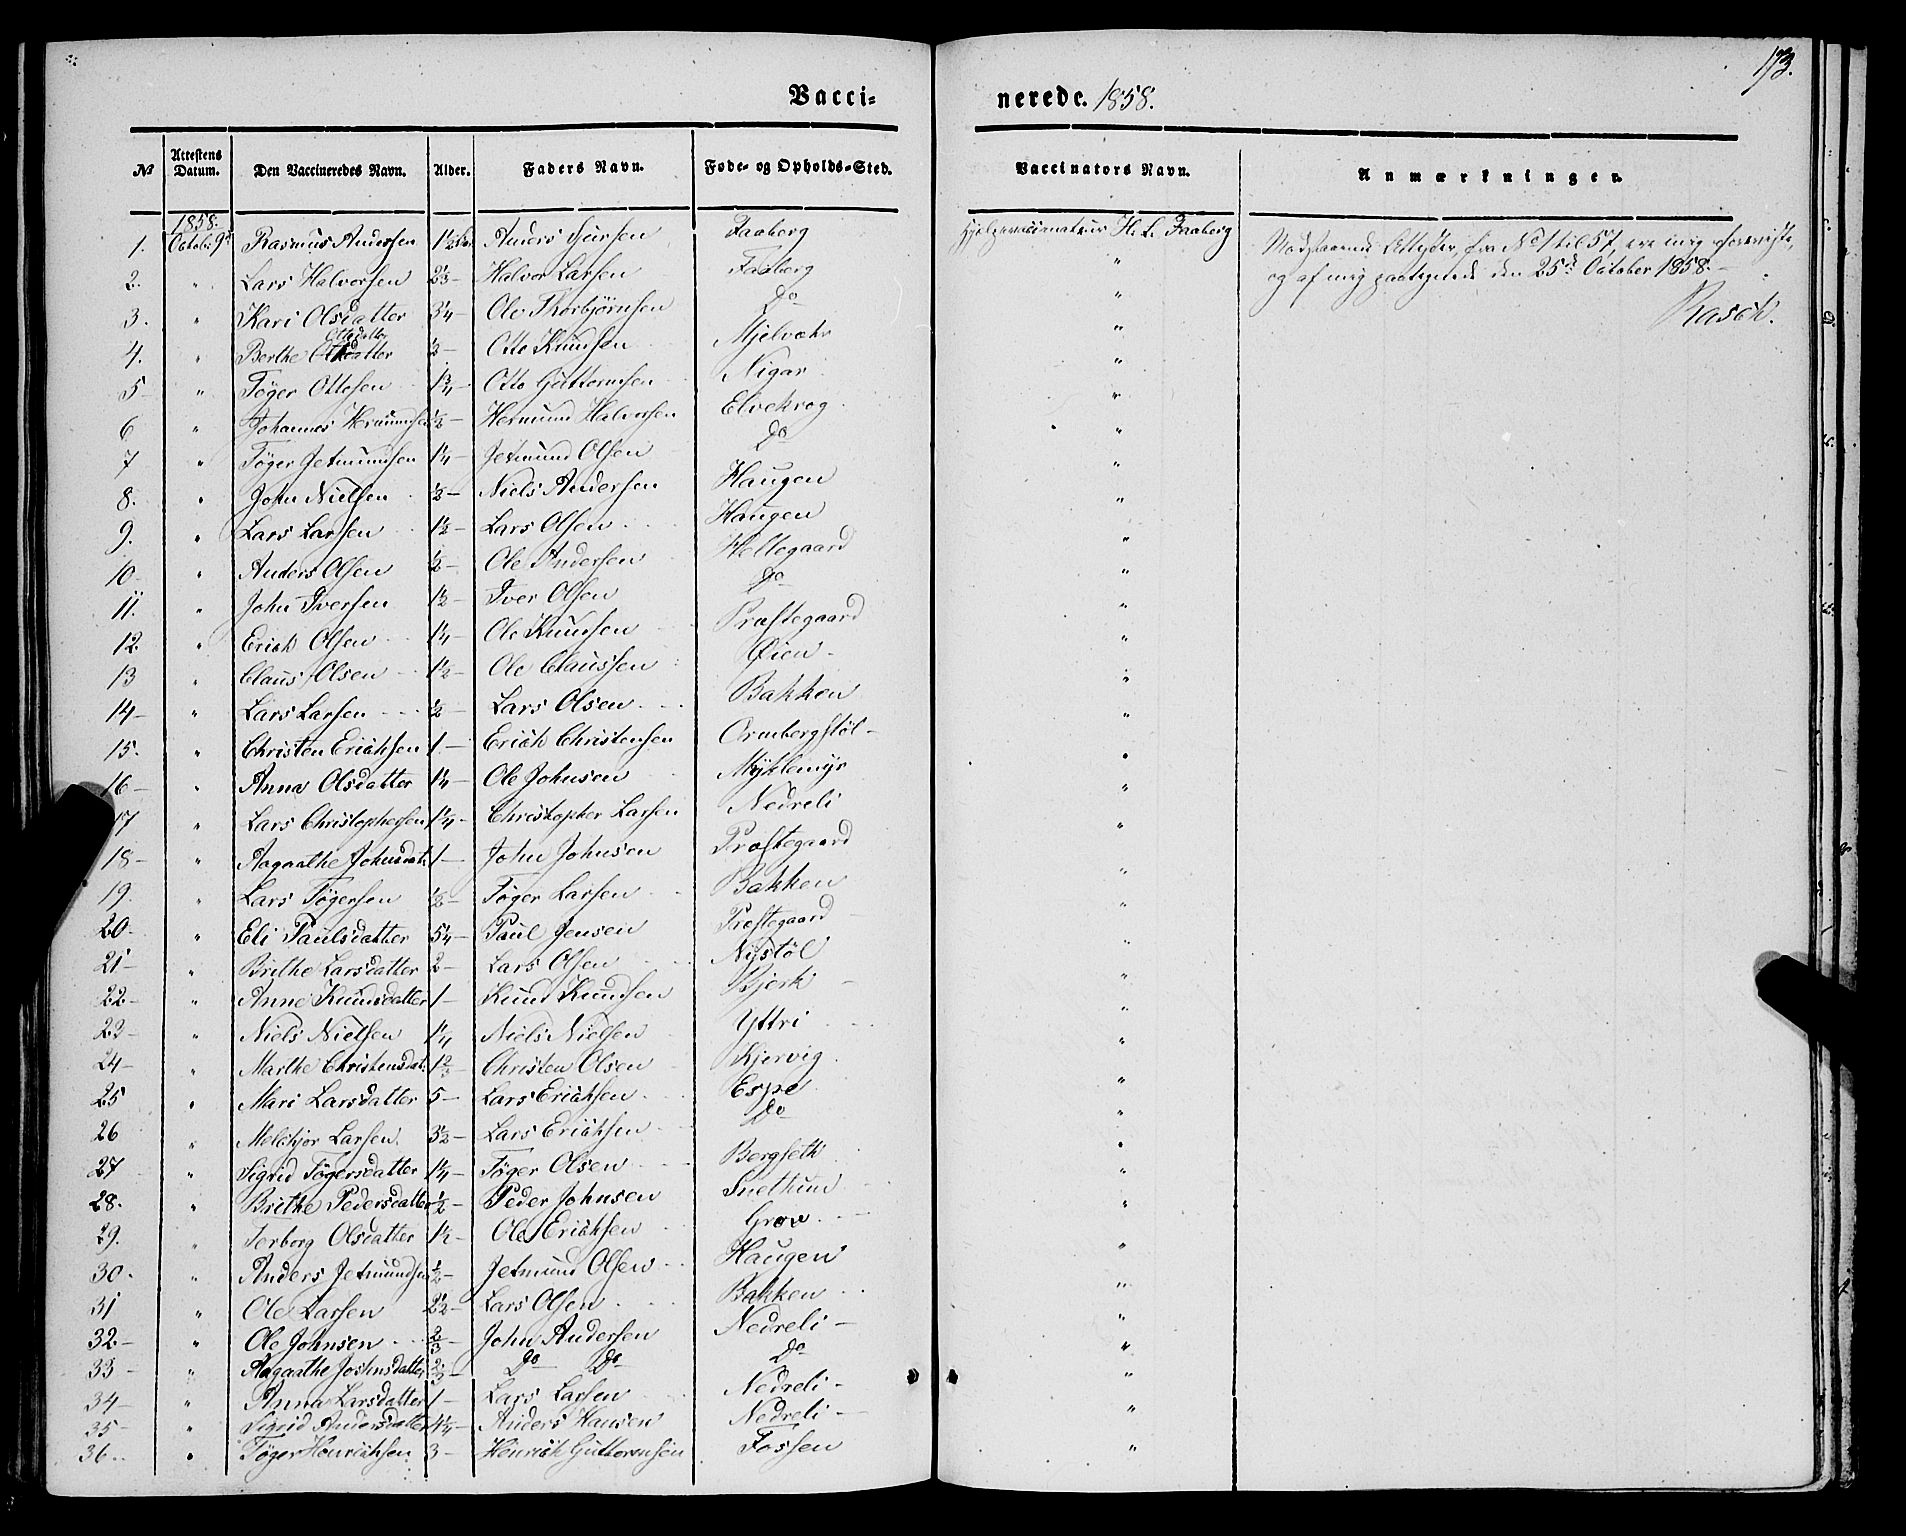 173.
Vacci- nerede. 1858.
No Attestens Datum. Den Vaccineredes Navn. Alder. Faders Navn. Føde- og Opholds-Sted. Vaccinators Navn. Anmærkninger.
1858.
1. Octob. 9d Rasmus Andersen 1½ Anders Faaberg Hjelpevaccinateur H. L. Faaberg
Modstaaende Attester, fra No 1 til 57, ere mig foreviste,
og af mig paategnede den 25d October 1858. —
Rasch.
2. " Lars Halvorsen 2⅓ — Halvor Larsen Faaberg "
3. " Kari Olsdatter 3¼ — Ole Thorbjørnsen Do "
Ottosdatter
4. " Berthe — Otto Knudsen Mjelvæhr "
5 " Tøger Ottosen 1¾ — Otto Guttormsen Nigar "
6 " Johannes Hermundsen ½ — Hermund Halvorsen Elvekrog "
7 " Tøger Jetmundsen 1¼ — Jetmund Olsen Do "
8. " John Nielsen ½ — Niels Andersen Haugen "
9. " Lars Larsen 1½ — Lars Olsen Haugen "
10 " Anders Olsen ½ — Ole Andersen Heltegaard "
11. " John Iversen 1½ — Iver Olsen Do "
12. " Erich Olsen 1¼ — Ole Knudsen Præstegaard "
13 " Claus Olsen 1½ — Ole Claussen Øien "
14 — " Lars Larsen ½ — Lars Olsen Bakken "
15. " Christen Erichsen 1 — Erich Christensen Ormbergstøl "
16 — " Anna Olsdatter 1¼ — Ole Johnsen Myklemyr "
17 " Lars Christophersen 1¼ — Christopher Larsen Nedreli "
18 — " Aagaathe Johnsdat. 1 — John Johnsen Præstegaard "
19. " Lars Tøgersen ½ — Tøger Larsen Bakken "
20 — " Eli Paulsdatter 5¼ — Paul Jensen Præstegaard "
21 — " Brithe Larsdatter 2 — Lars Olsen Nystøl "
22 — " Anne Knudsdatter 1 — Knud Knudsen Bjerk "
23 — " Niels Nielsen 1¼ Niels Nielsen Yttri "
24 — " Marthe Christensdat. 1⅔ Christen Olsen Kjervig "
25 " Mari Larsdatter 5 — Lars Erichsen Espe "
26 " Melchjor Larsen 3½ — Lars Erichsen Do "
27 " Sigrid Tøgersdatter 1¼ — Tøger Olsen Bergseth "
28. " Brithe Pedersdatter ½ — Peder Johnsen Snethun "
29. " Torborg Olsdatter 1½ — Ole Erichsen Grov "
30. " Anders Jetmundsen ½ — Jetmund Olsen Haugen "
31 " Ole Larsen 2½ — Lars Olsen Bakken "
32. — " Ole Johnsen ⅔ — John Andersen Nedreli — "
33 — " Aagaathe Johnsdatter ⅔ — Do Do Do "
34 — " Anna Larsdatter 1 — Lars Larsen Nedreli — "
35 — " Sigrid Andersdatter 4¼ — Anders Hansen Nedreli — "
36.. " Tøger Henrichsen 3 — Henrich Guttormsen Fossen "